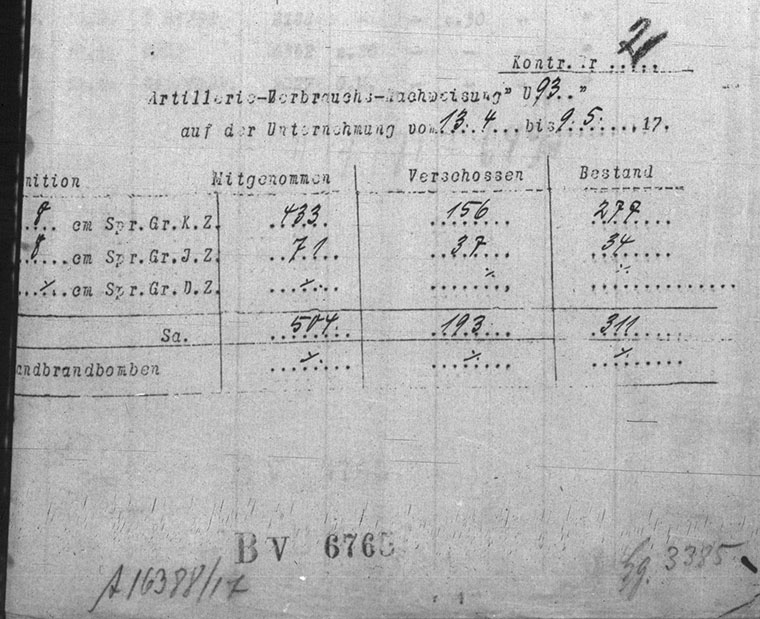 Kontr. Nr 21
Artillerie-Verbrauchs-Nachweisung "U 93."
auf der Unternehmung vom 13. 4. ... bis 9. 5. ... , 17.
nition Mitgenommen Verschossen Bestand
8 cm Spr.Gr.K.Z. 433 156 277
8 cm Spr.Gr.J.Z. 71 37 34
./. cm Spr.Gr.D.Z. ./. ./. ./.
Sa. 504 193 311
andbrandbomben ./. ./. ./.
BV 6765
A16388/17
3385